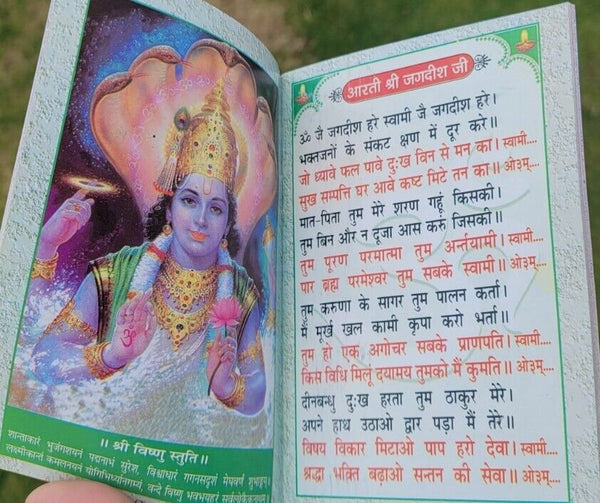 ॥ श्री विष्णु स्तुति ॥
शान्ताकारं भुजंगशयनं पद्मनाभं सुरेशं, विश्वाधारं गगनसदृशं मेघवर्णं शुभाङ्गम्
लक्ष्मीकान्तं कमलनयनं योगिभिर्ध्यानगम्यं, वन्दे विष्णु भवभयहरं सर्वलोकैकनाथम्
आरती श्री जगदीश जी
ॐ जै जगदीश हरे स्वामी जै जगदीश हरे।
भक्तजनों के संकट क्षण में दूर करे॥
जो ध्यावे फल पावे दुःख विन से मन का। स्वामी....
सुख सम्पत्ति घर आवे कष्ट मिटे तन का। ओ३म्....
मात-पिता तुम मेरे शरण गहूं किसकी।
तुम बिन और न दूजा आस करु जिसकी॥
तुम पूरण परमात्मा तुम अर्न्तयामी। स्वामी....
पार ब्रह्म परमेश्वर तुम सबके स्वामी॥ ओ३म्....
तुम करुणा के सागर तुम पालन कर्ता।
मैं मूर्ख खल कामी कृपा करो भर्ता॥
तुम हो एक अगोचर सबके प्राणपति। स्वामी....
किस विधि मिलूं दयामय तुमको मैं कुमति॥ ओ३म्....
दीनबन्धु दुःख हरता तुम ठाकुर मेरे।
अपने हाथ उठाओ द्वार पड़ा मैं तेरे॥
विषय विकार मिटाओ पाप हरो देवा। स्वामी....
श्रद्धा भक्ति बढ़ाओ सन्तन की सेवा॥ ओ३म्....